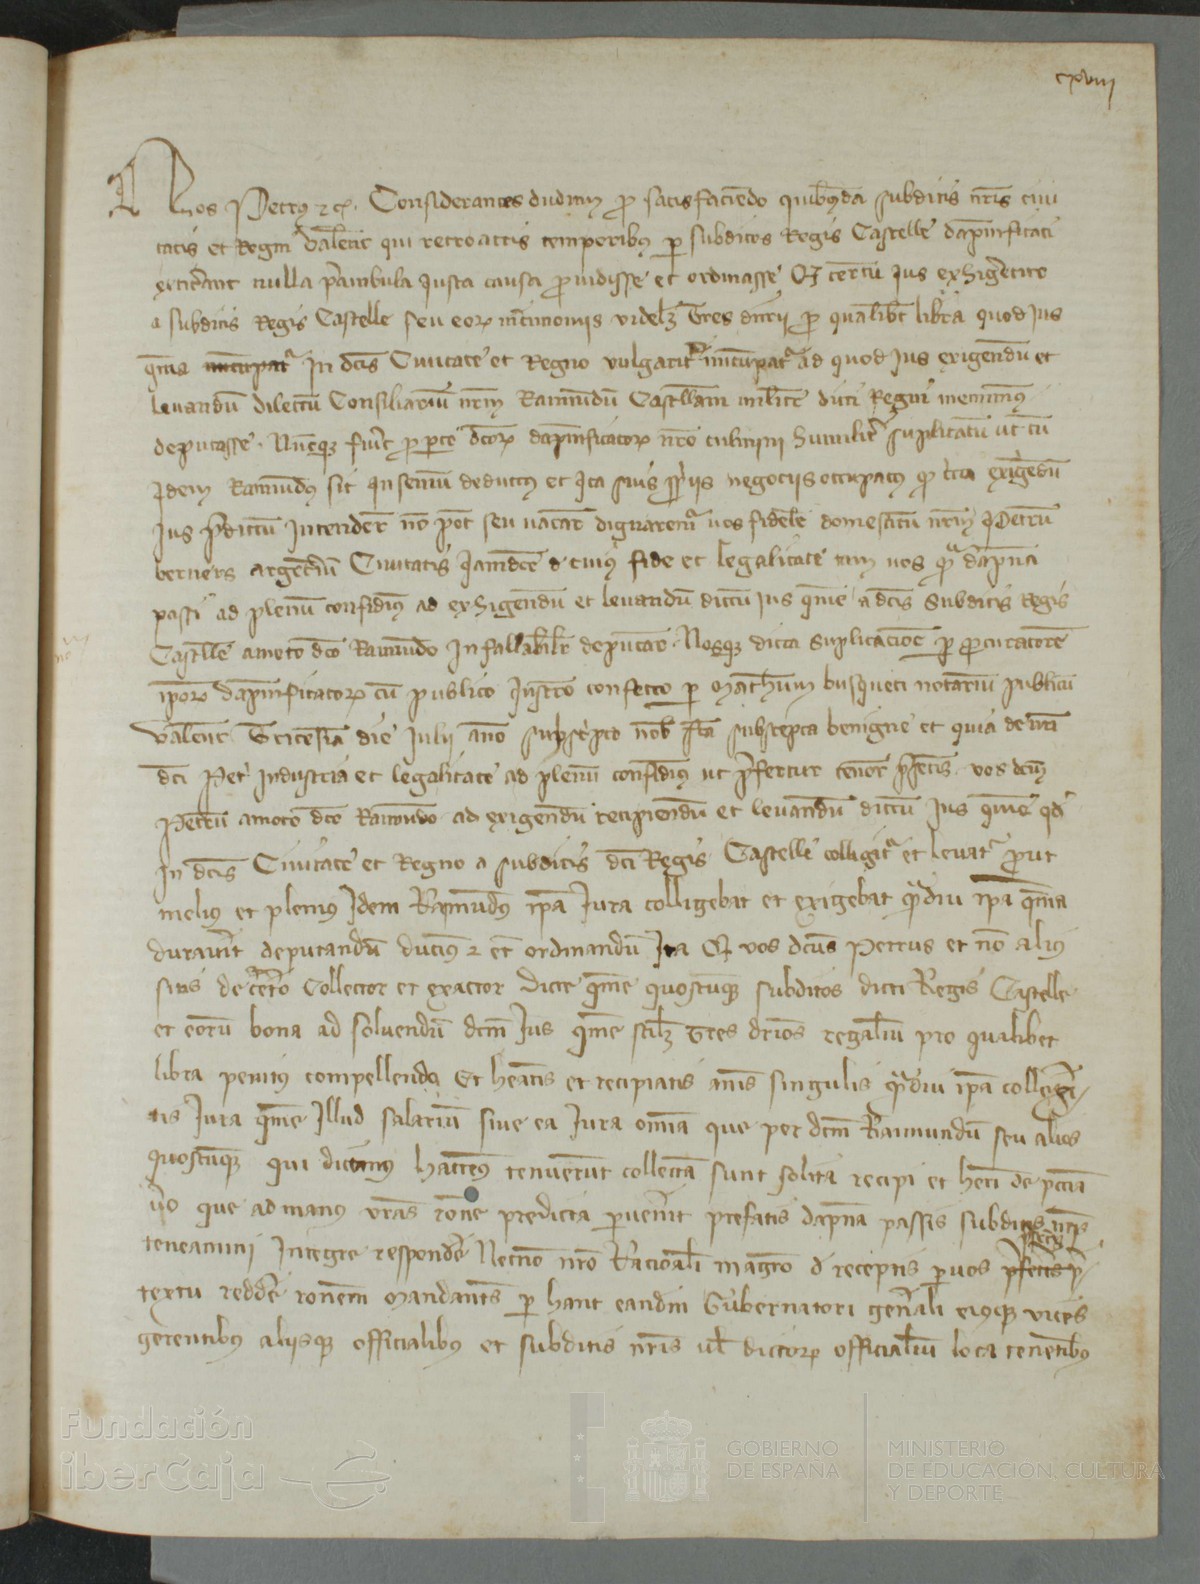 cxviii
Nos Petrus etc. Considerantes dudum pro satisfaciendo quibusdam subditis nostris civi
tatis et Regni Valentie qui retroactis temporibus per subditos Regis Castelle dampnificati
extiterant nulla preambula iusta causa providisse et ordinasse quod certum ius exhigeretur
a subditis Regis Castelle seu eorum mercimoniis videlicet Tres denarii pro qualibet libra quod ius
quema nuncupatur In dictis Civitate et Regno vulgariter nuncupatur ad quod ius exigendum et
levandum dilectum Consiliarium nostrum Raimundum Castellani militem dicti Regni meminimus
deputasse. Nuncque fuerit pro parte dictorum dampnificatorum nostro culmini humiliter suplicatum ut cum
Idem Raimundus sit In senium deductus et Ita suis propriis negociis occupatus quod circa exigendum
Ius predictum Intendere non potest seu vacare dignaremur vos fidelem domesticum nostrum Petrum
berners argenterium Civitatis Iamdicte de cuius fide et legalitate tam nos quam dampna
passi ad plenum confidimus ad exhigendum et levandum dictum Ius queme a dictis Subditis Regis
Castelle amoto dicto Raimundo Infallabiliter deputare. Nosque dicta suplicacione per procuratorem
ipsorum dampnificatorum cum publico Instrumento confecto per Matheum busqueti notarium publicum
Valentie Tricesima die Iulii anno subscripto nobis facta suscepta benigne et quia de vestri
dicti Petri Industria et legalitate ad plenum confidimus ut prefertur tenore presentis vos dictum
Petrum amoto dicto Raimundo ad exigendum recipiendum et levandum dictum Ius queme quod
In dictis Civitate et Regno a subditis dicti Regis Castelle colligitur et levatur prout
melius et plenius Idem Raimundus ipsa Iura colligebat et exigebat quamdiu ipsa quema
duraverit deputandum ducimus et etiam ordinandum Ita quod vos dictus Petrus et non alius
sitis de cetero Collector et exactor dicte queme quoscumque subditos dicti Regis Castelle
et eorum bona ad solvendum dictum Ius queme scilicet tres denarios regalium pro qualibet
libra penitus compellendo Et habeatis et recipiatis annis singulis quamdiu ipsa collegeri-
tis Iura queme Illud salarium sive ea Iura omnia que per dictum Raimundum seu alios
quoscumque qui dictimus hactenus tenuerunt collectam sunt solita recipi et haberi de peccunia
vero que ad manus vestras ratione predicta pervenerit prefatis dampna passis subditis nostris
teneamini Integre respondere Necnon nostro Racionali magistro de receptis per vos presentis
prefertis pre-
textu reddere rationem Mandantes per hanc eandem Gubernatori generali eiusque vices
gerentibus aliisque officialibus et subditis nostris vel dictorum officialium loca tenentibus
Fundación
iberCaja
GOBIERNO
DE ESPAÑA
MINISTERIO
DE EDUCACIÓN, CULTURA
Y DEPORTE